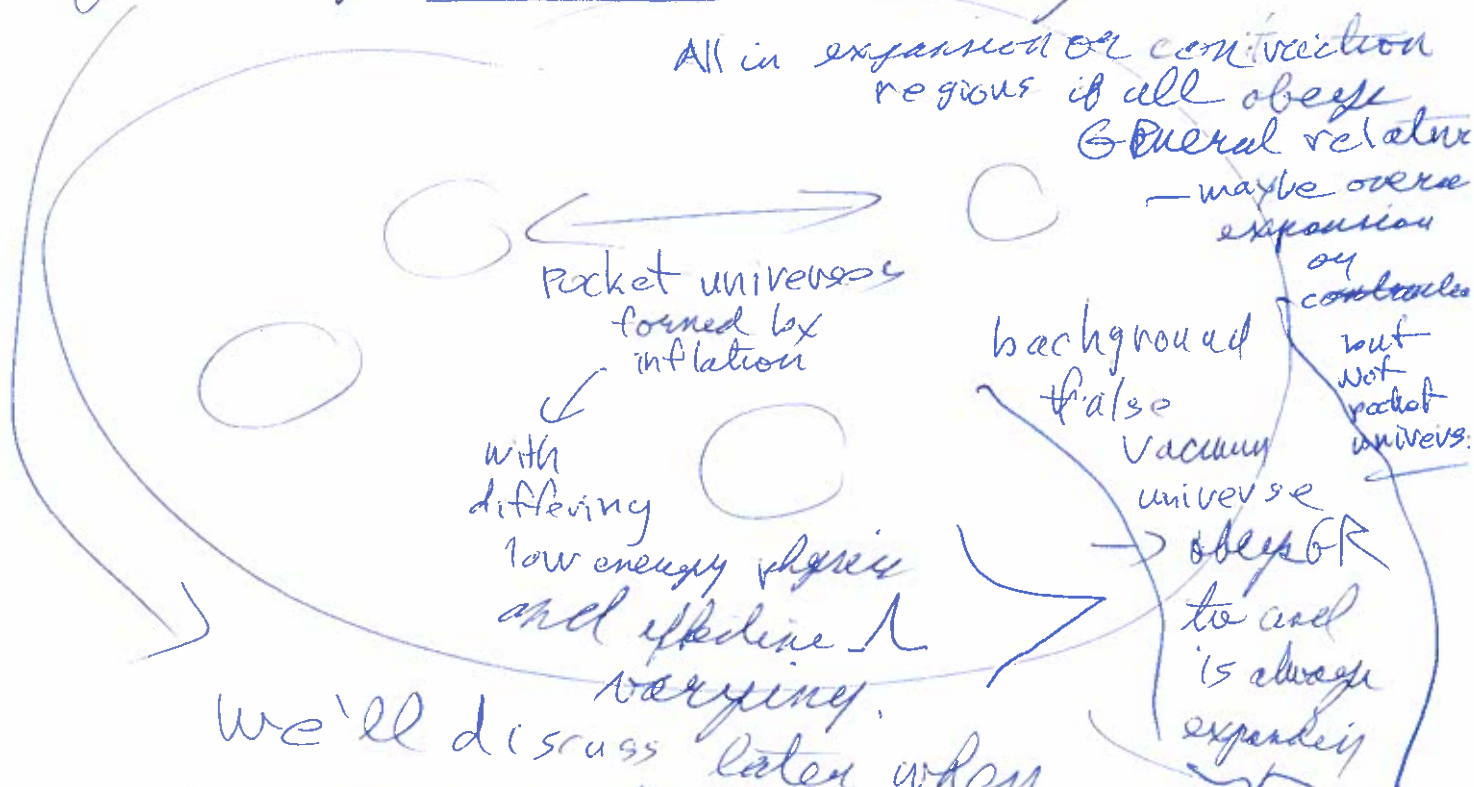 All in expansion or contraction
regions if all obeys
General relativ
— maybe overa
expansion
or
but
Not
pocket
univers.
Pocket universes
formed by
inflation
with
differing
low energy physics
and effective Λ
varying.
background
false
vacuum
universe
→ obeys GR
to and
is always
expanding
We'll discuss later when